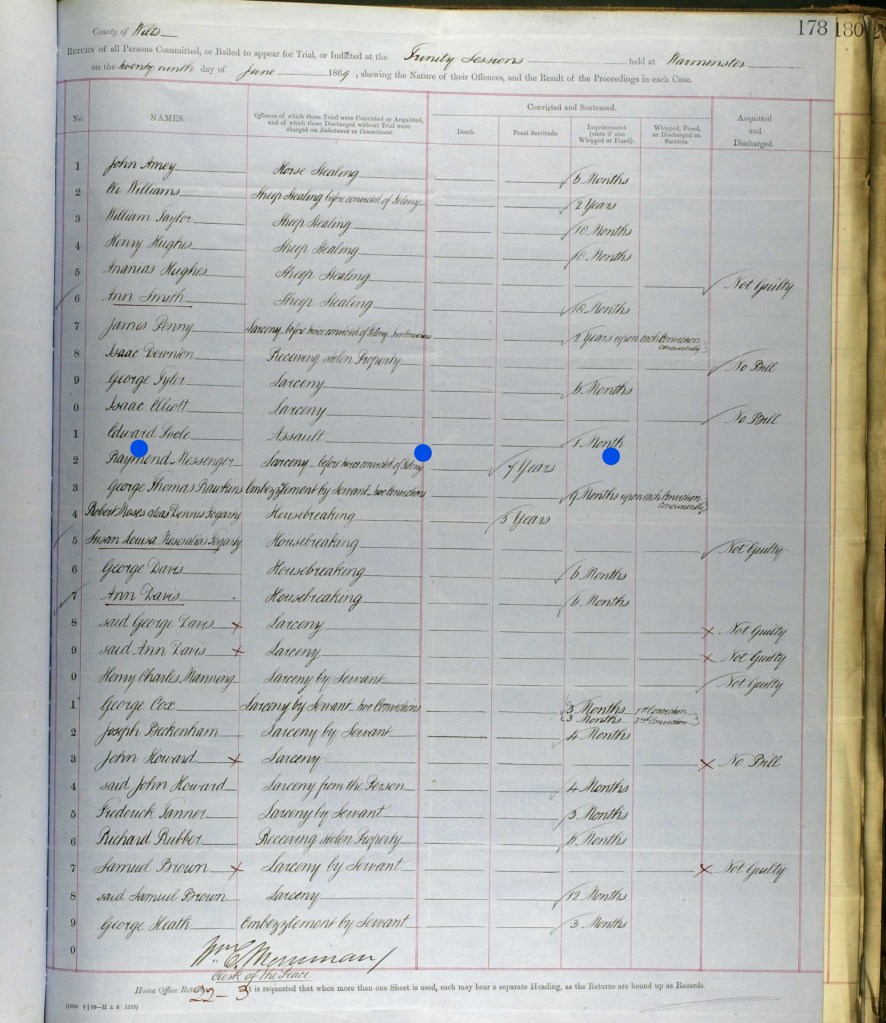 178 180 2
County of Wilts
RETURN of all Persons Committed, or Bailed to appear for Trial, or Indicted at the Trinity Sessions held at Warminster
on the twenty ninth day of June 1869, shewing the Nature of their Offences, and the Result of the Proceedings in each Case.
No. NAMES. Offences of which those Tried were Convicted or Acquitted, and of which those Discharged without Trial were charged on Indictment or Commitment. Convicted and Sentenced. Acquitted and Discharged
Death. Penal Servitude. Imprisonment (state if also Whipped or Fined). Whipped, Fined, or Discharged on Sureties.
1 John Amey Horse Stealing 6 Months
2 Wm Williams Sheep Stealing before convicted of Felony 2 Years
3 William Taylor Sheep Stealing 18 Months
4 Henry Hughes Sheep Stealing 18 Months
5 Ananias Hughes Sheep Stealing Not Guilty
6 Ann Smith Sheep Stealing 18 Months
7 James Penny Larceny before twice convicted of Felony two Convictions 2 Years upon each Conviction concurrently
8 Isaac Downton Receiving stolen Property No Bill
9 George Tyler Larceny 6 Months
0 Isaac Elliott Larceny No Bill
1 Edward Poole Assault 1 Month
2 Raymond Messenger Larceny before twice convicted of Felony 7 Years
3 George Thomas Hawkins Embezzlement by Servant two Convictions 9 Months upon each Conviction concurrently
4 Robert Moses alias Dennis Fogarty Housebreaking 5 Years
5 Susan Louisa Moses alias Fogarty Housebreaking Not Guilty
6 George Davis Housebreaking 6 Months
7 Ann Davis Housebreaking 6 Months
8 said George Davis x Larceny x Not Guilty
9 said Ann Davis x Larceny x Not Guilty
0 Henry Charles Manning Larceny by Servant Not Guilty
1 George Cox Larceny by Servant two Convictions 3 Months 1st Conviction
3 Months 2nd Conviction
2 Joseph Beckenham Larceny by Servant 4 Months
3 John Howard x Larceny x No Bill
4 said John Howard Larceny from the Person 4 Months
5 Frederick Tanner Larceny by Servant 3 Months
6 Richard Rubber Receiving stolen Property 6 Months
7 Samuel Brown x Larceny by Servant x Not Guilty
8 said Samuel Brown Larceny 12 Months
9 George Heath Embezzlement by Servant 3 Months
0
Wm C. Merriman
Clerk of the Peace
Home Office 22-3 It is requested that when more than one Sheet is used, each may bear a separate Heading, as the Returns are bound up as Records.